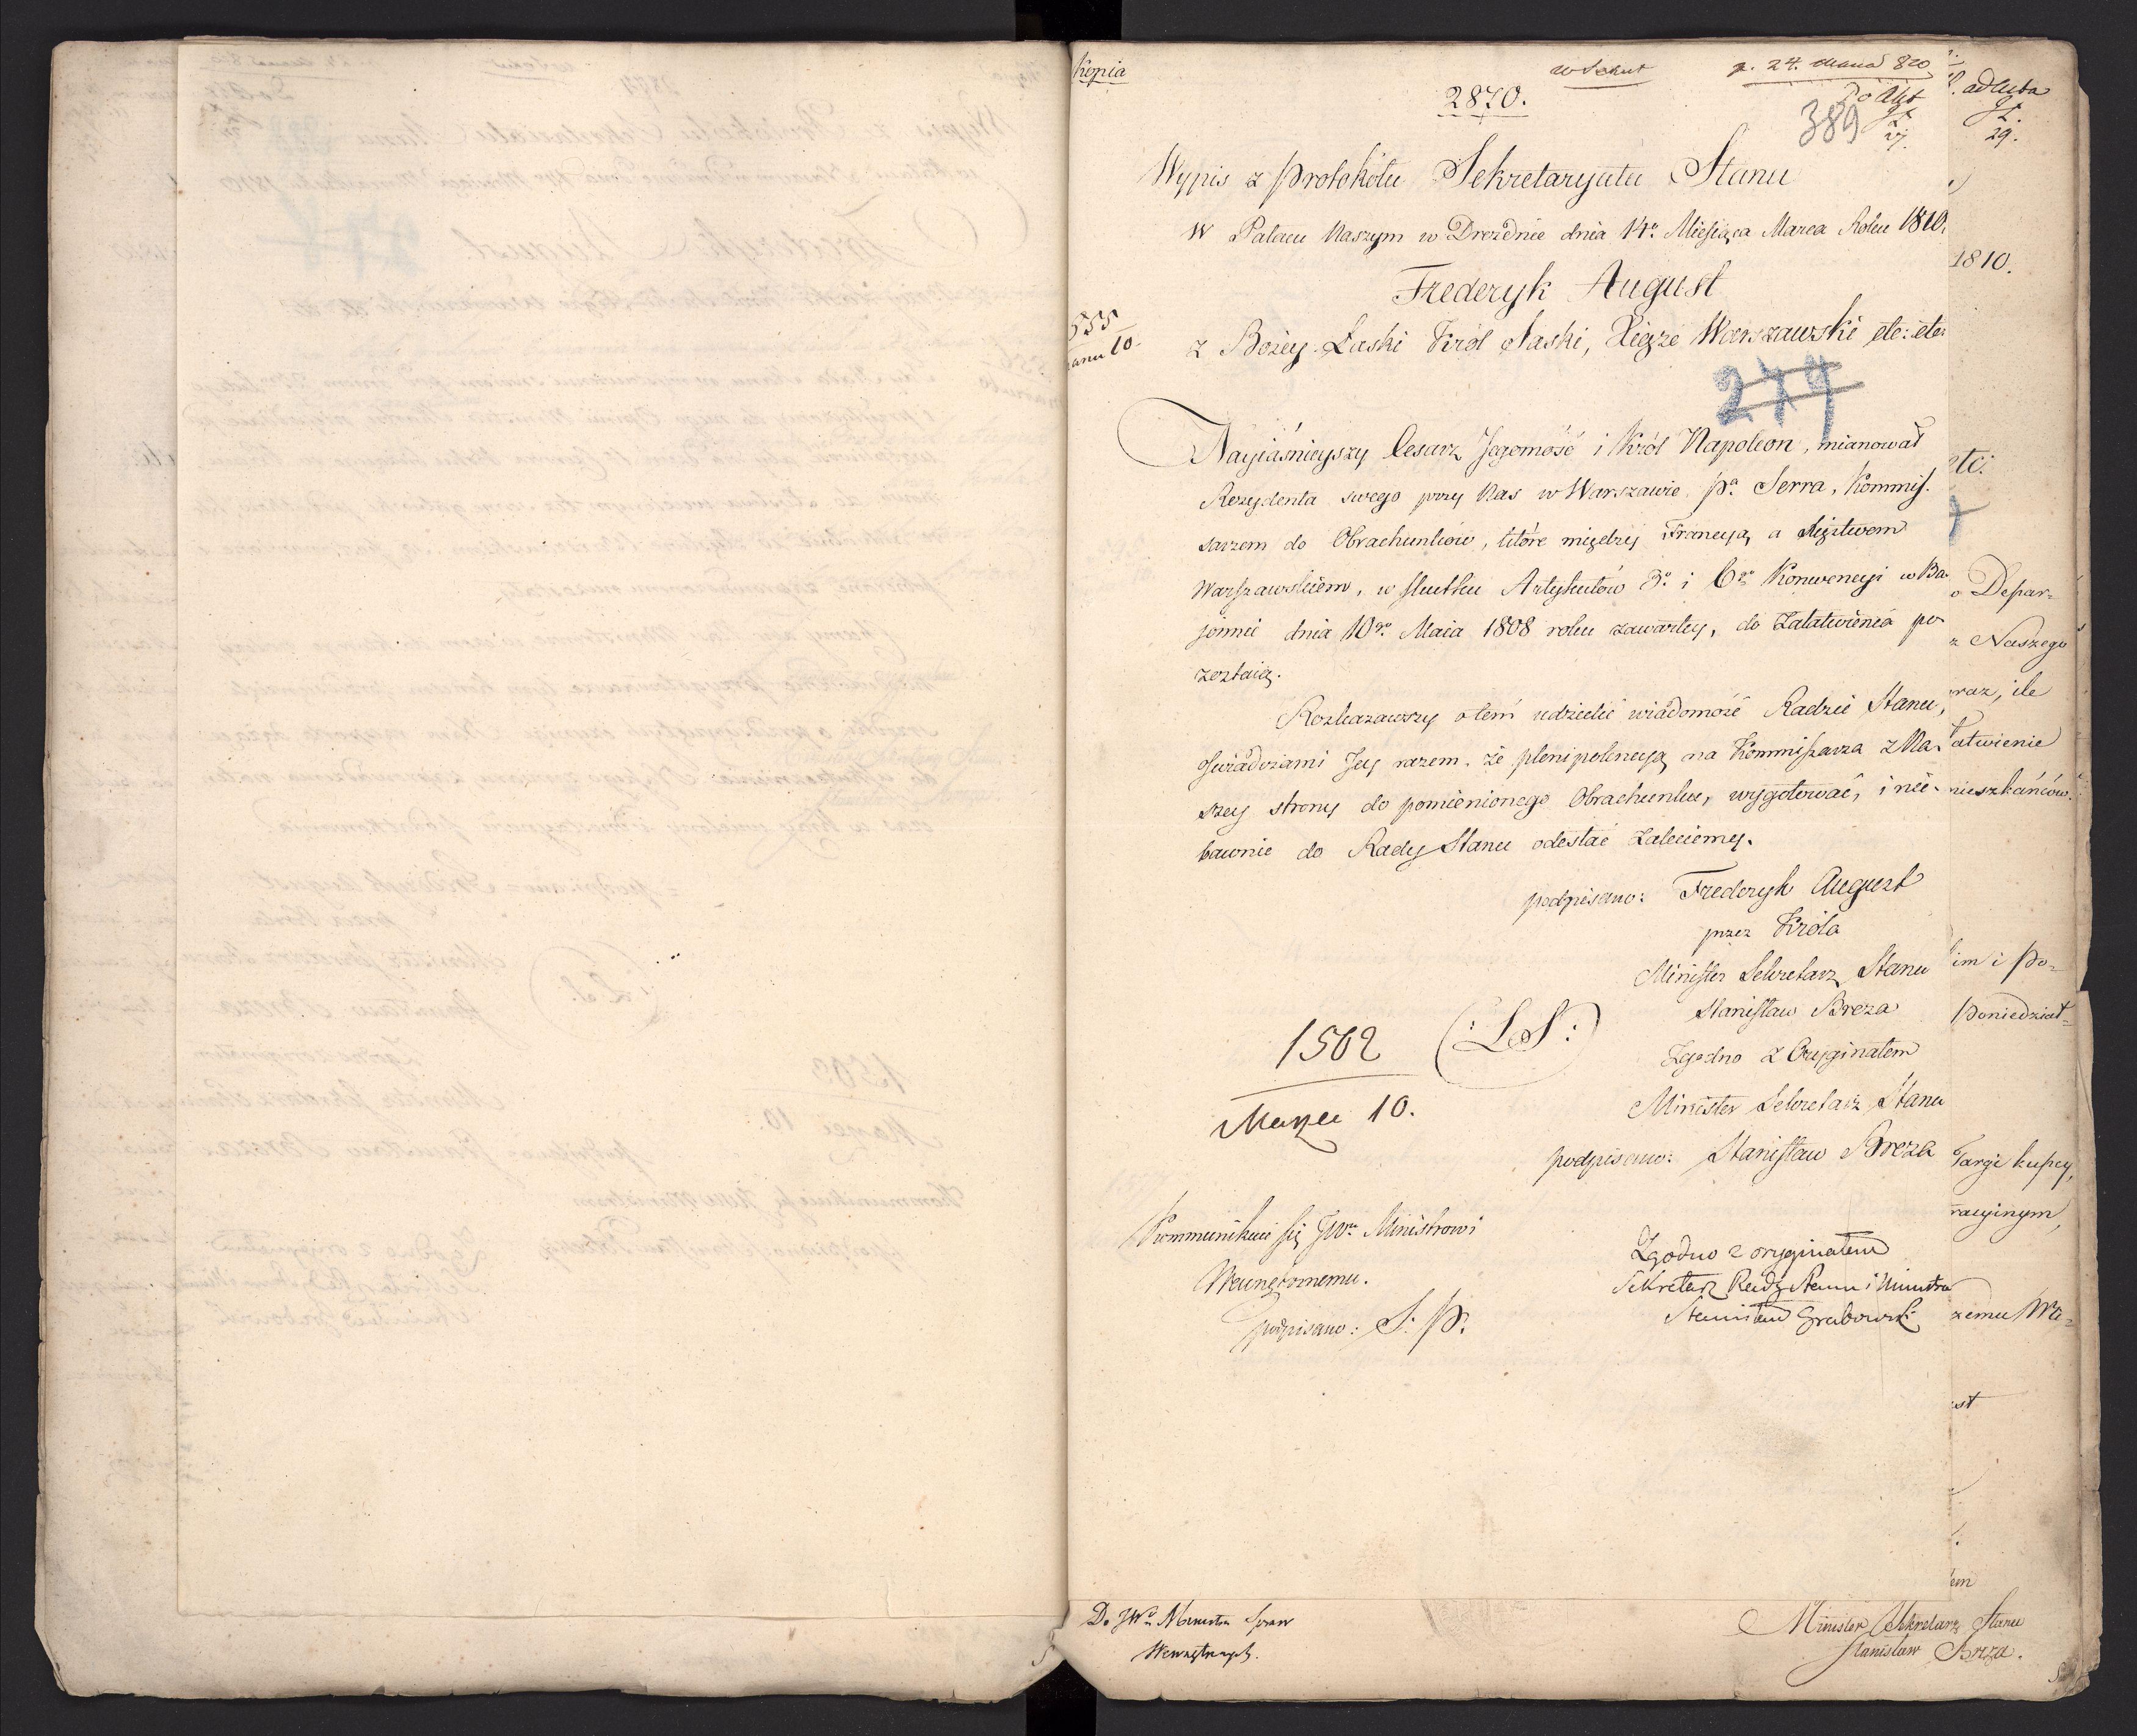 Kopia
2870.
p. 24. Marca 810
Do Akt
389
Wypis z Protokółu Sekretaryatu Stanu
W Pałacu Naszym w Dreźdnie dnia 14º Miesiąca Marca Roku 1810.
Frederyk August
z Bożey Łaski Król Saski, Xiąże Warszawski etc: etc:
279
Nayiaśnieyszy Cesarz Jegomość i Król Napoleon, mianował
Rezydenta swego przy Nas w Warszawie, Pª Serra, Kommis-
sarzem do Obrachunków, które między Francyą a Xięstwem
Warszawskiem, w skutku Artykułów 3º i 6go Konwencyi w Ba-
jonnie dnia 10go Maia 1808 roku zawartey, do załatwienia po-
zostaią.
Rozkazawszy o tem udzielić wiadomość Radzie Stanu,
oświadczamy Jey razem, że plenipotencyą na Kommissarza z Na-
szey strony do pomienionego Obrachunku, wygotować, i nie-
bawnie do Rady Stanu odesłać zaleciemy.
podpisano: Frederyk August
przez Króla
Minister Sekretarz Stanu
Stanisław Breza
(: L.S :)
Zgodno z Oryginałem
Minister Sekretarz Stanu
podpisano: Stanisław Breza
1502
Marca 10.
Kommunikuie się JWmu Ministrowi
Wewnętrznemu.
podpisano: S. P.
Zgodno z oryginałem
Sekretarz Rady Stanu i Ministrów
Stanisław Grabowski
555
10.
ad acta
29.
1810.
etc:
o Depar-
z Naszego
raz, ile
łatwienie
mieszkańców.
im i Po-
Poniedział-
Targi kupcy,
racyinym,
zemu Wa-
st
em
Do JWº Ministra Spraw
Wewnętrznych.
Minister Sekretarz Stanu
Stanisław Breza.